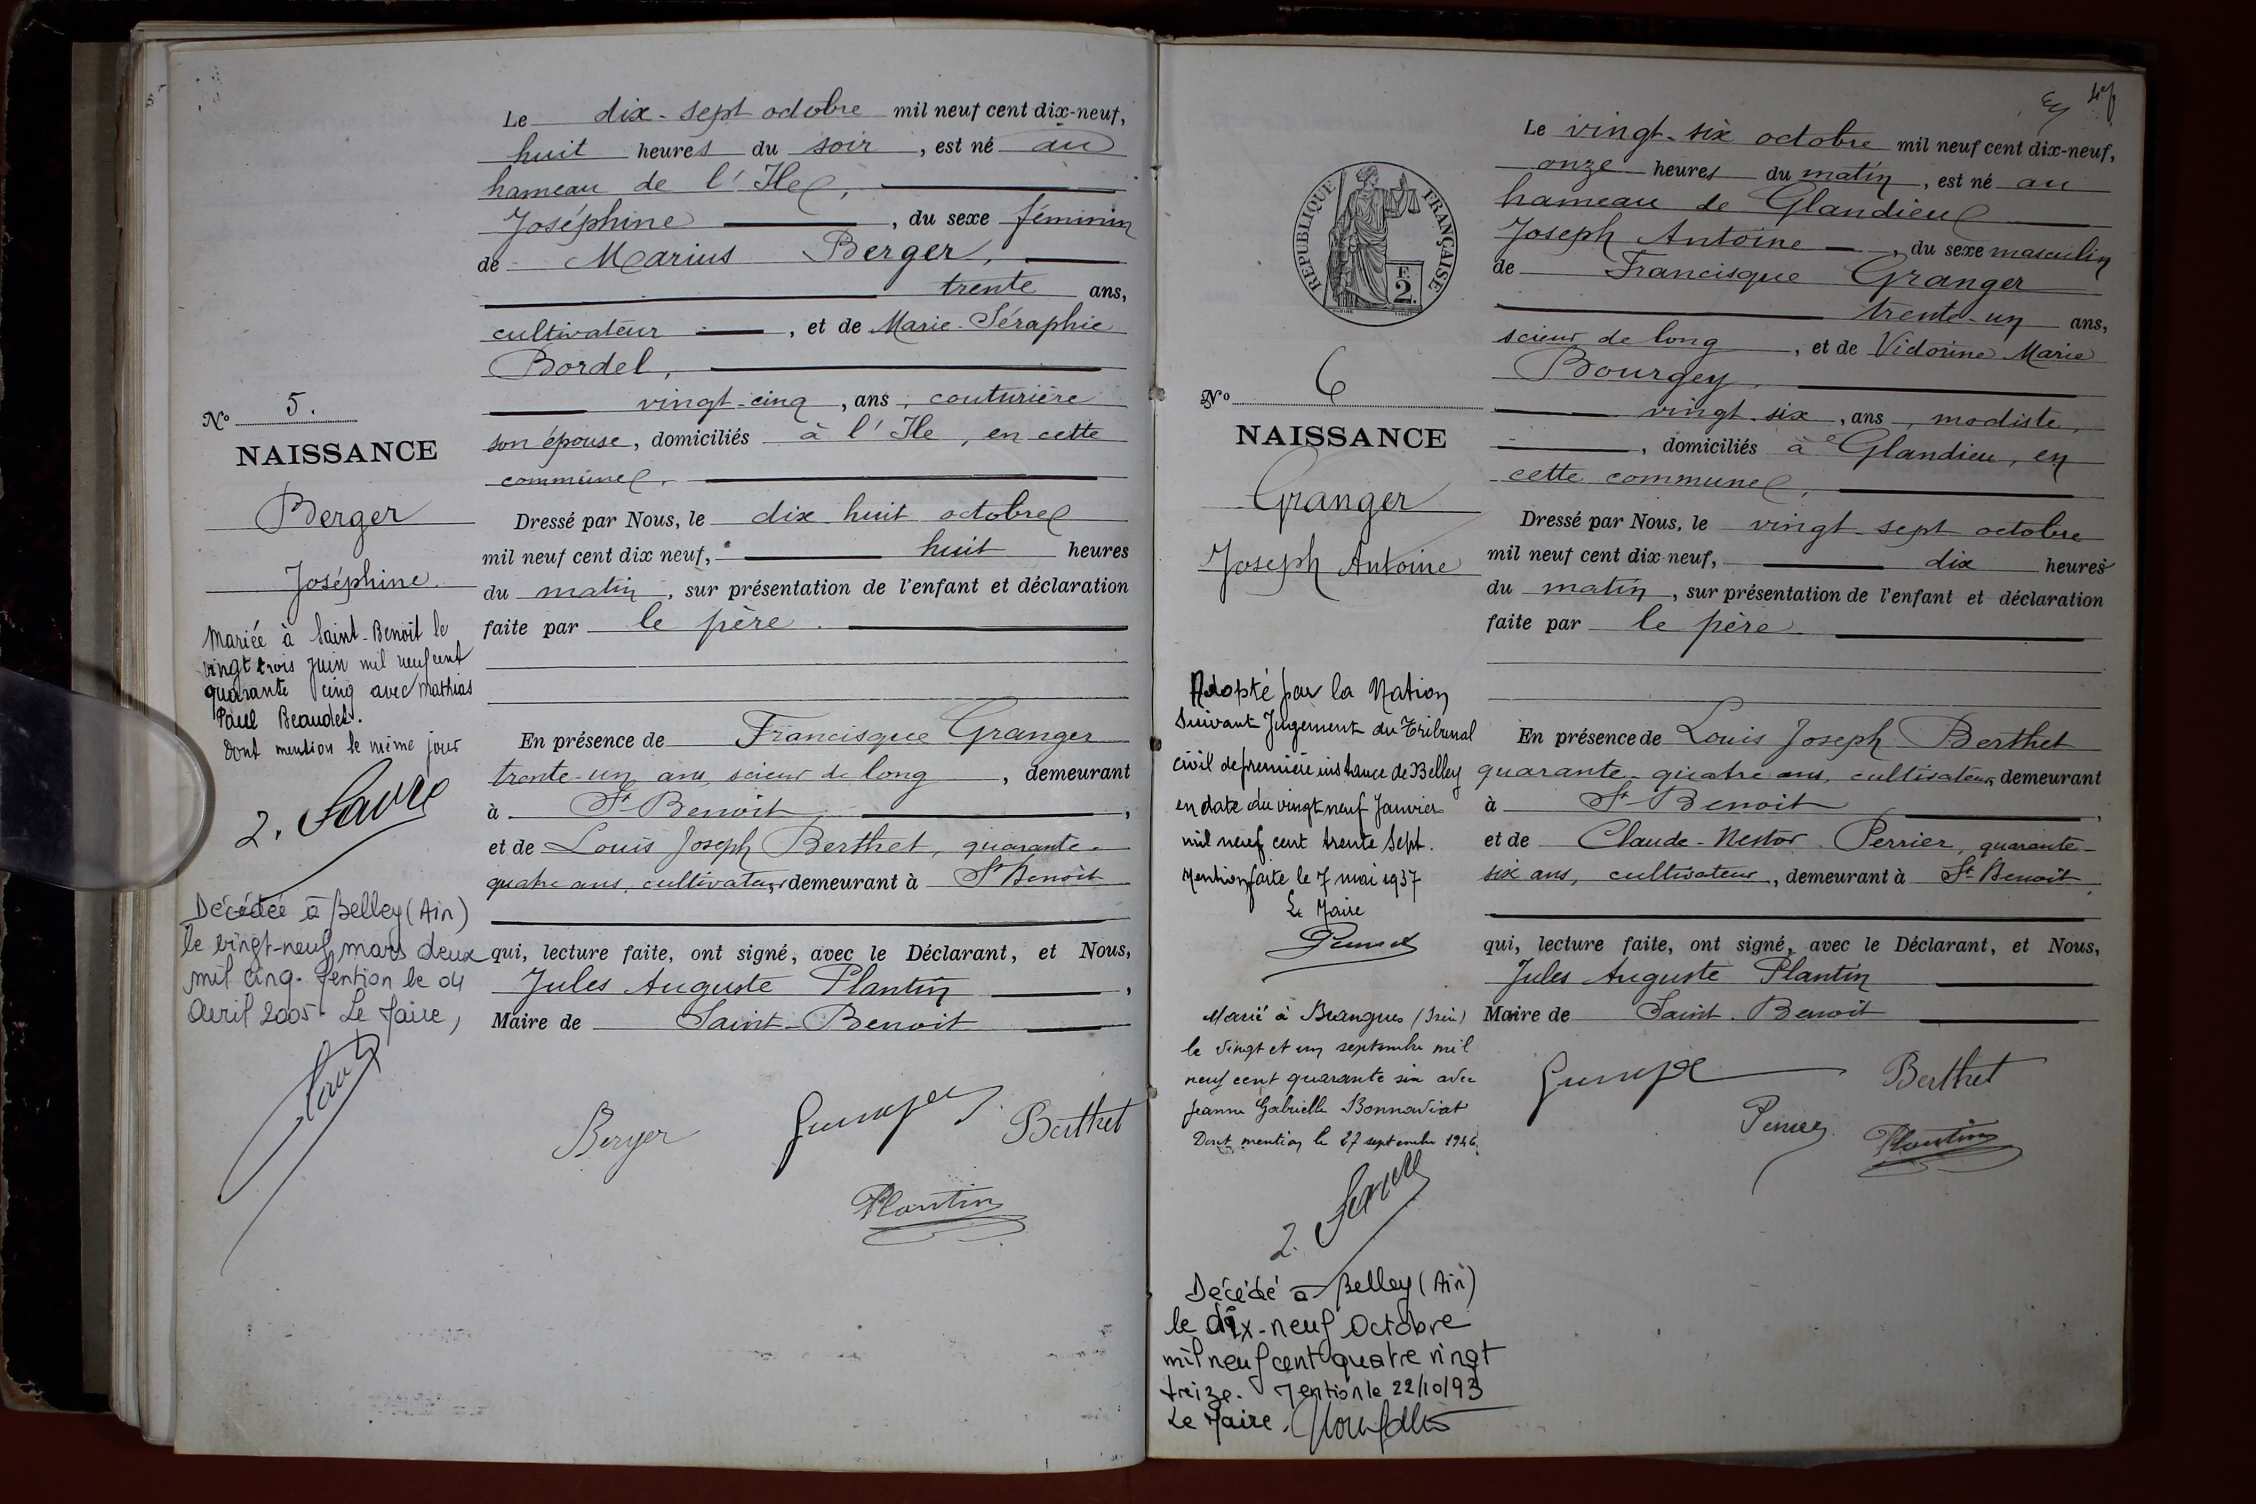 Le dix-sept octobre mil neuf cent dix-neuf,
huit heures du soir, est né au
hameau de l'Ile,
Joséphine, du sexe féminin
de Marius Berger,
trente ans,
cultivateur, et de Marie-Séraphie
Bordel,
vingt-cinq, ans, couturière
son épouse, domiciliés à l'Ile, en cette
commune.
No 5.
NAISSANCE
Berger
Joséphine
Dressé par Nous, le dix huit octobre
mil neuf cent dix neuf, huit heures
du matin, sur présentation de l'enfant et déclaration
faite par le père.
Mariée à Saint-Benoit le
vingt trois juin mil neuf cent
quarante cinq avec Mathias
Paul Beaudet.
Dont mention le même jour
2. Favre
Décédée à Belley (Ain)
le vingt-neuf mars deux
mil cinq. Mention le 04
Avril 2005. Le Maire,
En présence de Francisque Granger
trente-un ans, scieur de long, demeurant
à St Benoit,
et de Louis Joseph Berthet, quarante-
quatre ans, cultivateur, demeurant à St Benoit
qui, lecture faite, ont signé, avec le Déclarant, et Nous,
Jules Auguste Plantin,
Maire de Saint-Benoit
Berger
Granger
Berthet
Plantin
47
RÉPUBLIQUE FRANÇAISE
F.
2.
Le vingt-six octobre mil neuf cent dix-neuf,
onze heures du matin, est né au
hameau de Glandieu
Joseph Antoine, du sexe masculin
de Francisque Granger
trente-un ans,
scieur de long, et de Victorine Marie
Bourgey,
vingt-six, ans, modiste,
, domiciliés à Glandieu, en
cette commune,
No 6
NAISSANCE
Granger
Joseph Antoine
Dressé par Nous, le vingt-sept octobre
mil neuf cent dix-neuf, dix heures
du matin, sur présentation de l'enfant et déclaration
faite par le père.
Adopté par la Nation
Suivant Jugement du Tribunal
civil de première instance de Belley
en date du vingt neuf Janvier
mil neuf cent trente sept.
Mention faite le 7 mai 1937
Le Maire
Marié à Brangues (Isère)
le vingt et un septembre mil
neuf cent quarante six avec
Jeanne Gabrielle Bonnardiat
Dont mention le 27 septembre 1946
2. Favre
Décédé à Belley (Ain)
le dix-neuf Octobre
mil neuf cent quatre vingt
treize. Mention le 22/10/93
Le Maire.
En présence de Louis Joseph Berthet
quarante-quatre ans, cultivateur, demeurant
à St-Benoit,
et de Claude-Nestor Perrier, quarante-
six ans, cultivateur, demeurant à St Benoit,
qui, lecture faite, ont signé, avec le Déclarant, et Nous,
Jules Auguste Plantin
Maire de Saint-Benoit
Granger
Berthet
Perrier
Plantin